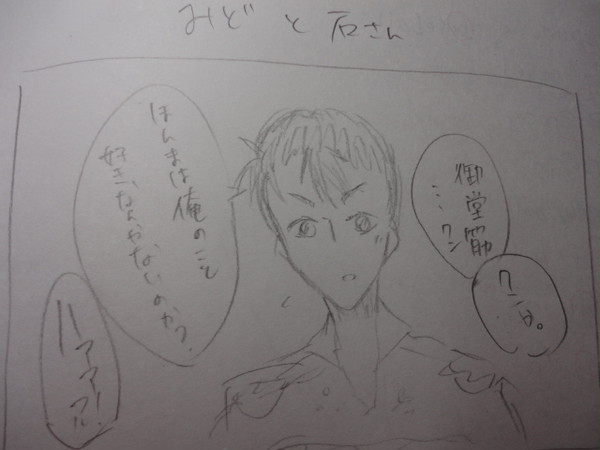 みどと石さん
御堂筋
…クン
クンは。
ほんまは俺のこと
好きなんやないのか?
ハァァ!